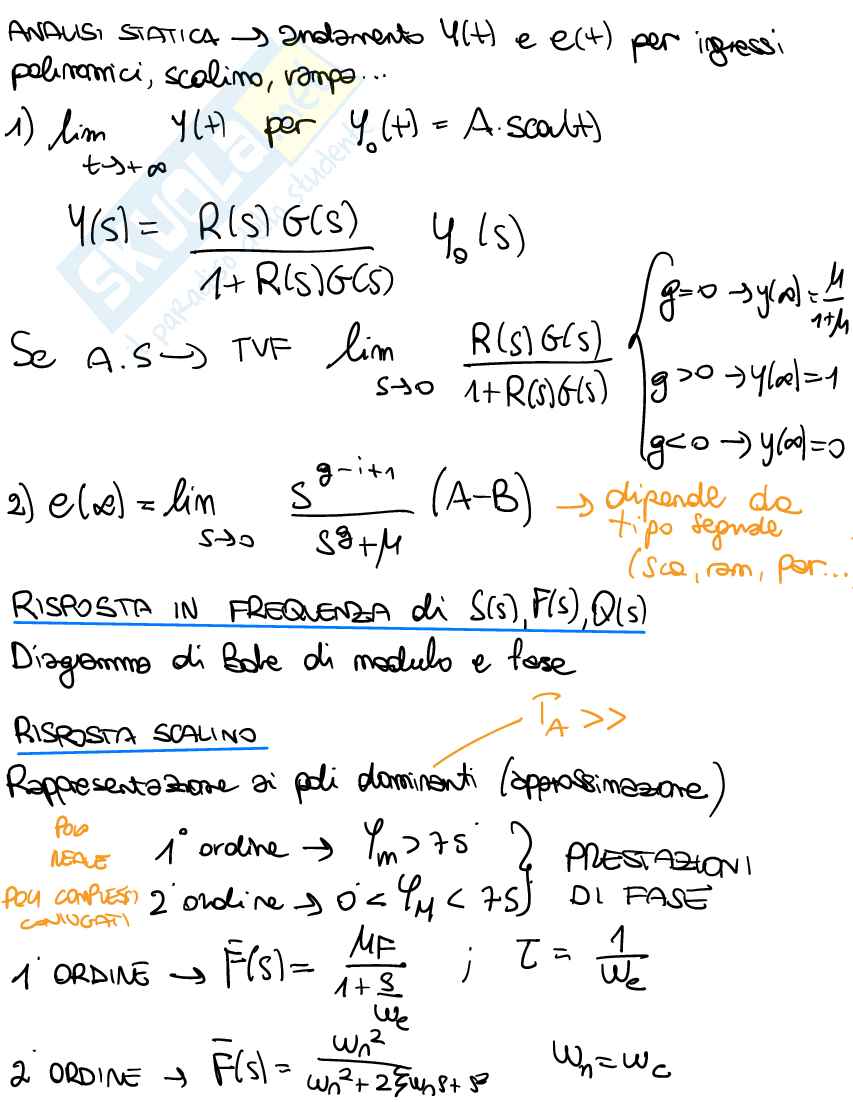 ANALISI STATICA → andamento y(t) e e(t) per ingressi
polinomici, scalino, rampa...
1) lim t→+∞ y(t) per y₀(t) = A·sca(t)
Y(s) = R(s)G(s) / 1+R(s)G(s) Y₀(s)
Se A.S → TVF lim s→0 R(s)G(s) / 1+R(s)G(s)
g=0 → y(∞)= μ / 1+μ
g>0 → y(∞)=1
g<0 → y(∞)=0
2) e(∞) = lim s→0 s^(g-i+1) / s^g+μ (A-B) → dipende da
tipo segnale
(sca, ram, par...
RISPOSTA IN FREQUENZA di S(s), F(s), Q(s)
Diagramma di Bode di modulo e fase
RISPOSTA SCALINO
T_A >>
Rappresentazione ai poli dominanti (approssimazione)
POLO
REALE
1° ordine → φm > 75°
POLI COMPLESSI
CONIUGATI
2° ordine → 0° < φM < 75°
PRESTAZIONI
DI FASE
1° ORDINE → F̄(s) = μF / 1+ s/ωc ; τ = 1/ωc
2° ORDINE → F̄(s) = ωn² / ωn²+2ξωns+s² ωn=ωc
SKUOLA.net
il paradiso dello studente